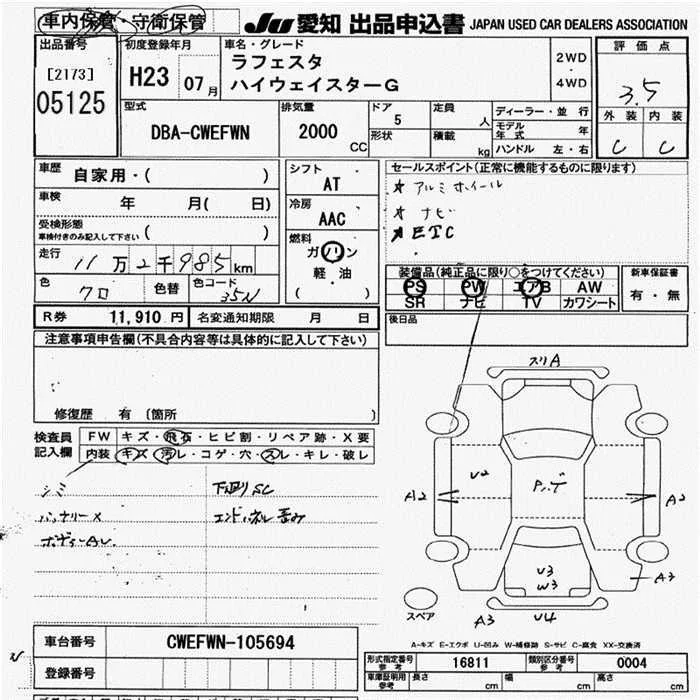 車内保管・守衛保管
JU 愛知 出品申込書 JAPAN USED CAR DEALERS ASSOCIATION
出品番号 初度登録年月 車名・グレード 評価点
[2173] H23 07月 ラフェスタ 2WD
05125 ハイウェイスターG 4WD 3.5
型式 排気量 ドア 定員 ディーラー・並行 外装 内装
DBA-CWEFWN 2000 CC 5 人 モデル年式 年 C C
形状 積載 kg ハンドル 左・右
車歴 自家用・( ) シフト AT セールスポイント(正常に機能するものに限ります)
車検 年 月( 日) 冷房 AAC ★アルミホイール
受検形態 ( ) ★ナビ
車検付きのみ記入して下さい
燃料 ★ETC
走行 11万2千985km ガソリン
軽・油
( )
装備品(純正品に限り○をつけてください) 新車保証書
色 クロ 色替 色コード 35N PS PW エアB AW 有・無
SR ナビ TV カワシート
R券 11,910円 名変通知期限 月 日 後日品
注意事項申告欄(不具合内容等は具体的に記入して下さい)
修復歴 有 〔箇所 〕
検査員記入欄 FW キズ・飛石・ヒビ割・リペア跡・X要
内装 キズ・汚レ・コゲ・穴・スレ・キレ・破レ
シミ 下廻りSC
バッテリーX エンドパネル歪み
スリA
U2
A2 A2
U3
W3
A3
スペア A3 U4
A-キズ E-エクボ U-凹み W-補修跡 S-サビ C-腐食 XX-交換済
車台番号 CWEFWN-105694
登録番号
形式指定番号 参考 16811 類別区分番号 参考 0004
車庫証明用 参考 長さ cm 幅 cm 高さ cm